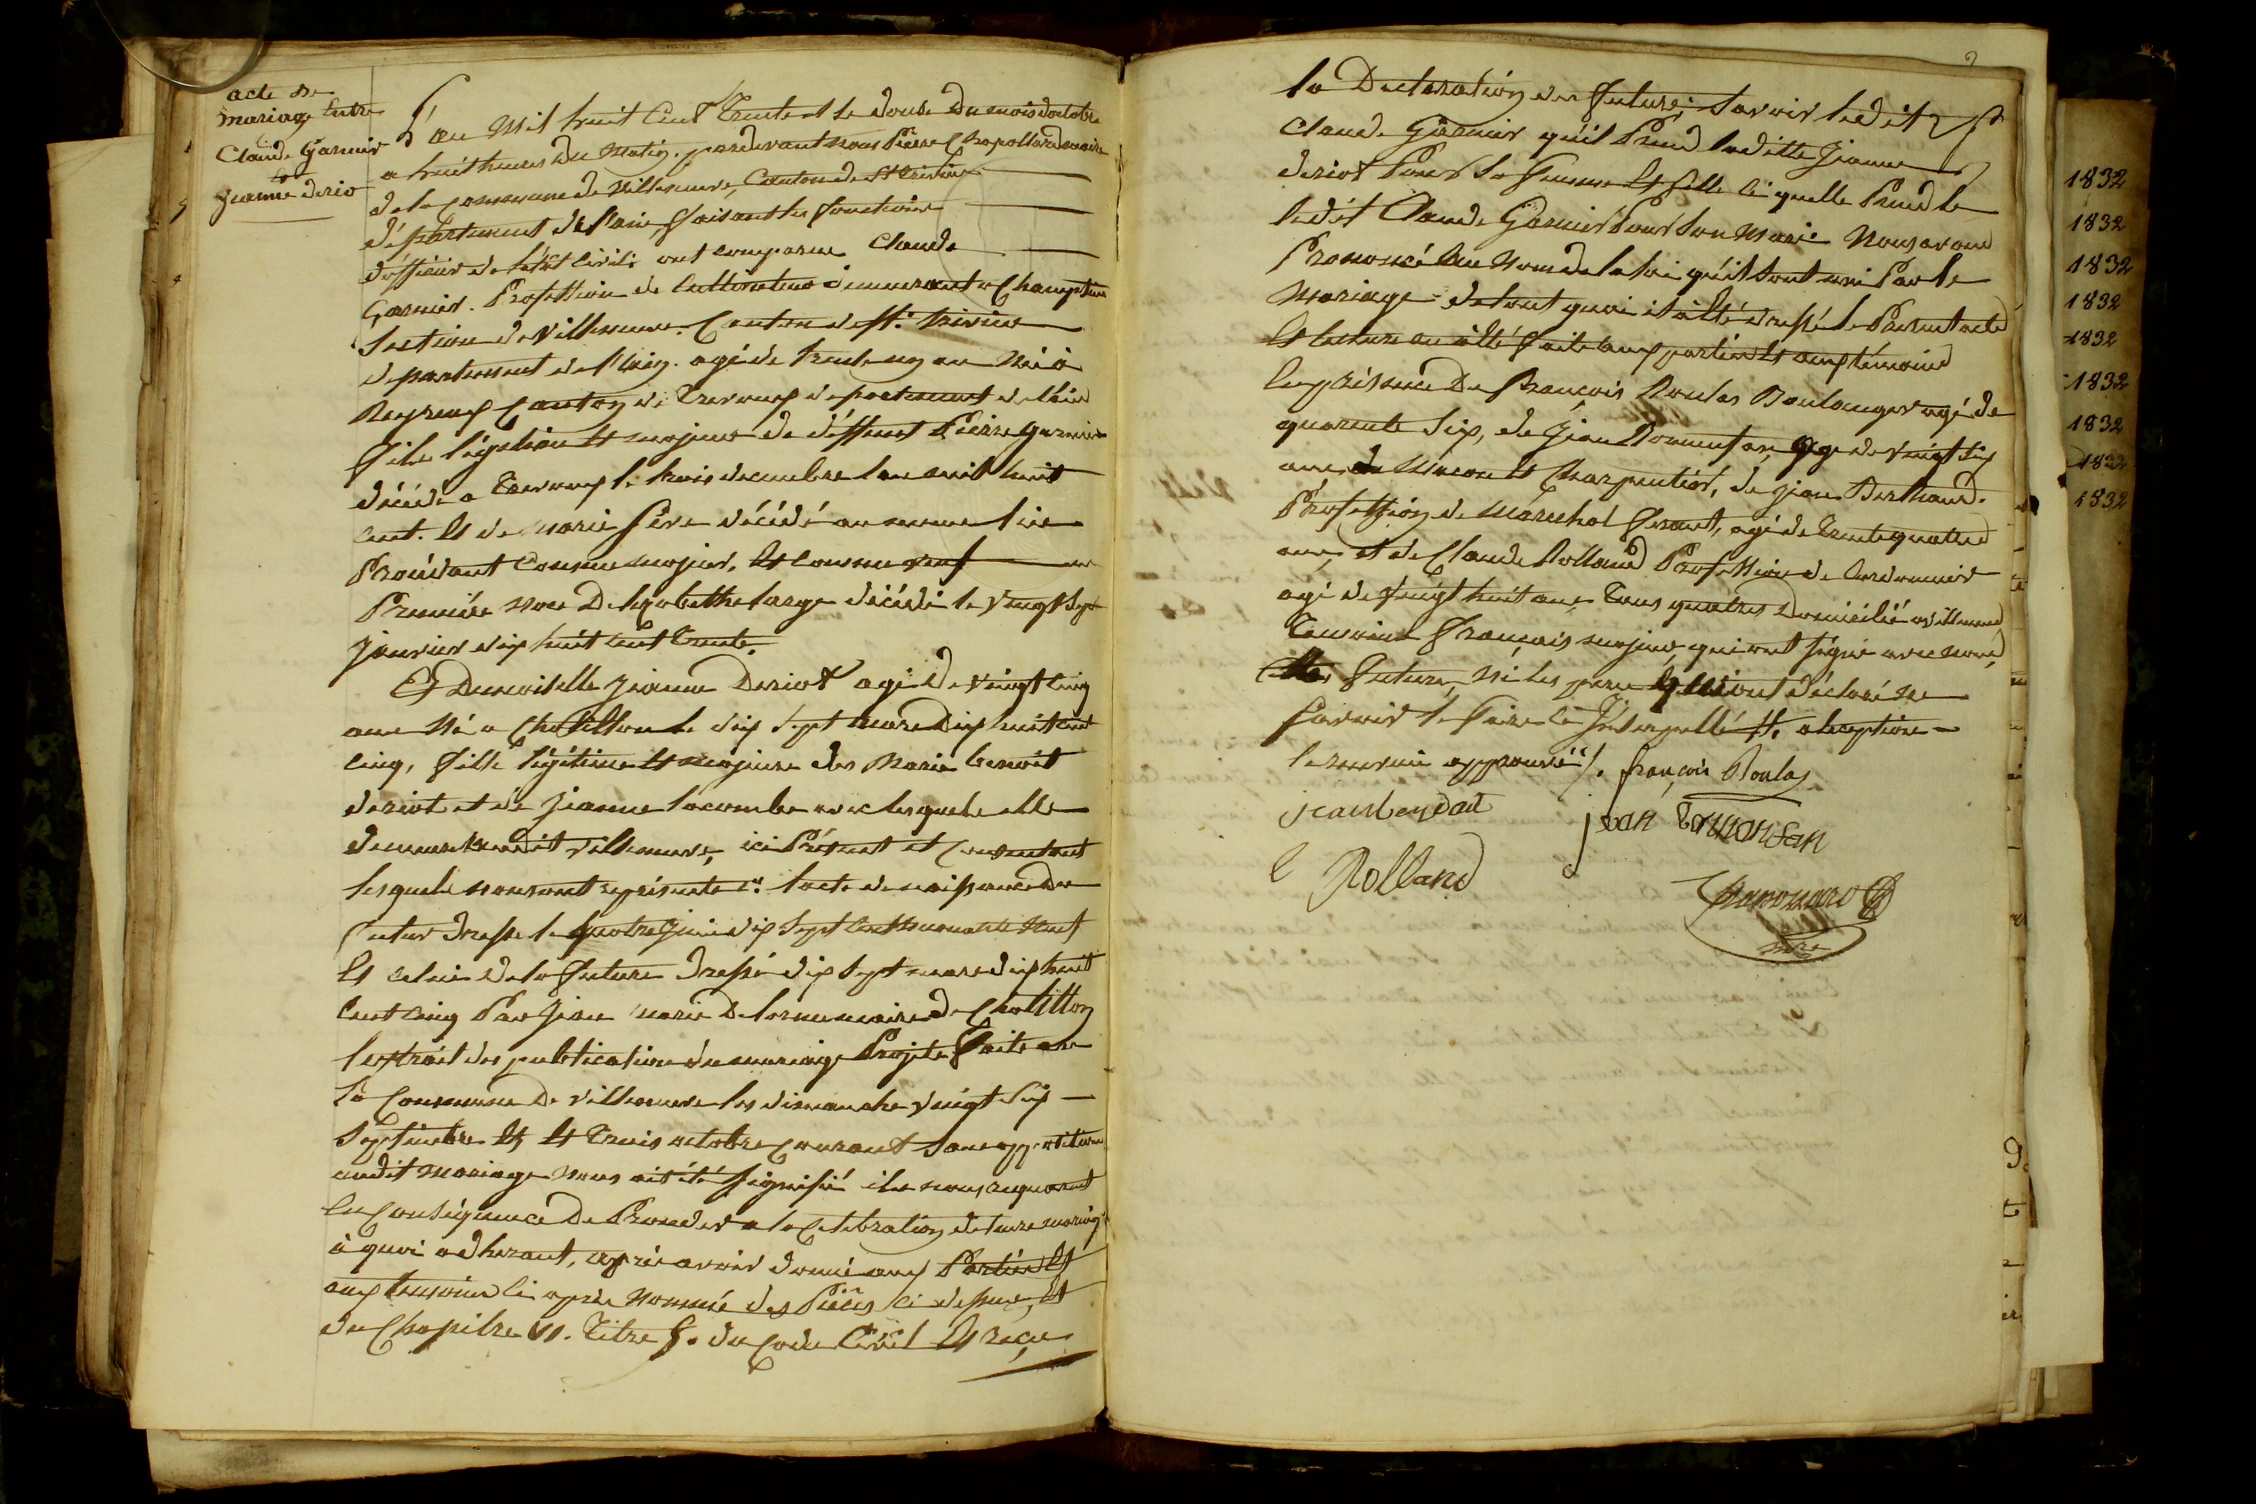 acte de
mariage Entre
Claude Garnier
et
jeanne deriot
L'an Mil huit Cent Trente et le douse Du mois doctobre
a huit heures du Matin. pardevant nous Pierre Chapolard maire
de la Commune de Villeneuve, Canton de St trivier
département de l'ain faisant les fonctions
d'officier de l'état civil; ont comparu Claude
Garnier. Profession de Cultivateur demeurant a
Section de Villeneuve. Canton de St. trivier
departement de l'ain. agé de trente un an Né à
Reyrieux Canton de Trevoux departement de l'ain
fils légitime et majeur de déffunt Pierre Garnier
décédé a Trevoux le trois decembre l'an mil huit
cent. Et de Marie décédé au meme lieu
Procédant comme majeur, Et comme veuf
Premiere Noce Delizabethe large décédé le vingt Sept
janvier dix huit cent trente.
Et Demoiselle jeanne Deriot agé de vingt cinq
ans Né a Chatillon le dix Sept mars Dix huit cent
cinq, fille légitime et majeure des Marie benoit
deriot et de jeanne lacombe avec lesquels elle
demeure audit villeneuve, ici Présent et Consentant
lesquels nous ont représenté 1°. l'acte de naissance du
futur dressé le quatre juin dix Sept Cent nonante neuf
Et celui de la future dressé dix Sept mars dix huit
cent cinq Par jean marie Delorme maire de Chatillon
l'extrait des publications du mariage Projeté faite en
la Commune De Villeneuve les dimanche vingt Six
Septembre et trois octobre Courant Sans opposition
audit mariage nous ait été signifié ils nous requerent
En Conséquence De Proceder a la Celebration de leur mariage
à quoi adherant, après avoir donné aux Parties Et
aux temoins ci après Nommé des Pièces ci dessus, Et
du Chapitre VI. Titre 5. du Code Civil Et reçu
la Declaration des futurs; Savoir ledit
Claude Garnier qu'il Prend laditte Jeanne
deriot Pour Sa femme Et celle ci quelle Prend le
ledit Claude Garnier Pour Son Mari Nous avons
Prononcé Au Nom de la loi qu'ils Sont uni Par le
Mariage de tout quoi il a été dressé le Present acte
Et lecture en a été faite aux parties Et aux témoins
En présence De François Roulas Boulanger agé de
quarente Six, de Jean Tormansan agé de Vingt Six
ans Macon Et Charpentier, de jean
Profession de Maréchal ferant, agé de Trente quatre
ans, et de Claude Rolland Profession de Cordonnier
agé de vingt huit ans, Tous quatres Domicilié a villeneuve
Temoins français majeurs, qui ont signé avec nous,
les future, Ni les pere ont déclaré ne
Savoir le faire ce Interpellé. a l'exception
le approuvé/. françois Roulas
jean jean Tormansan
C Rolland
mre
2
1832
1832
1832
1832
1832
1832
1832
1832
1832